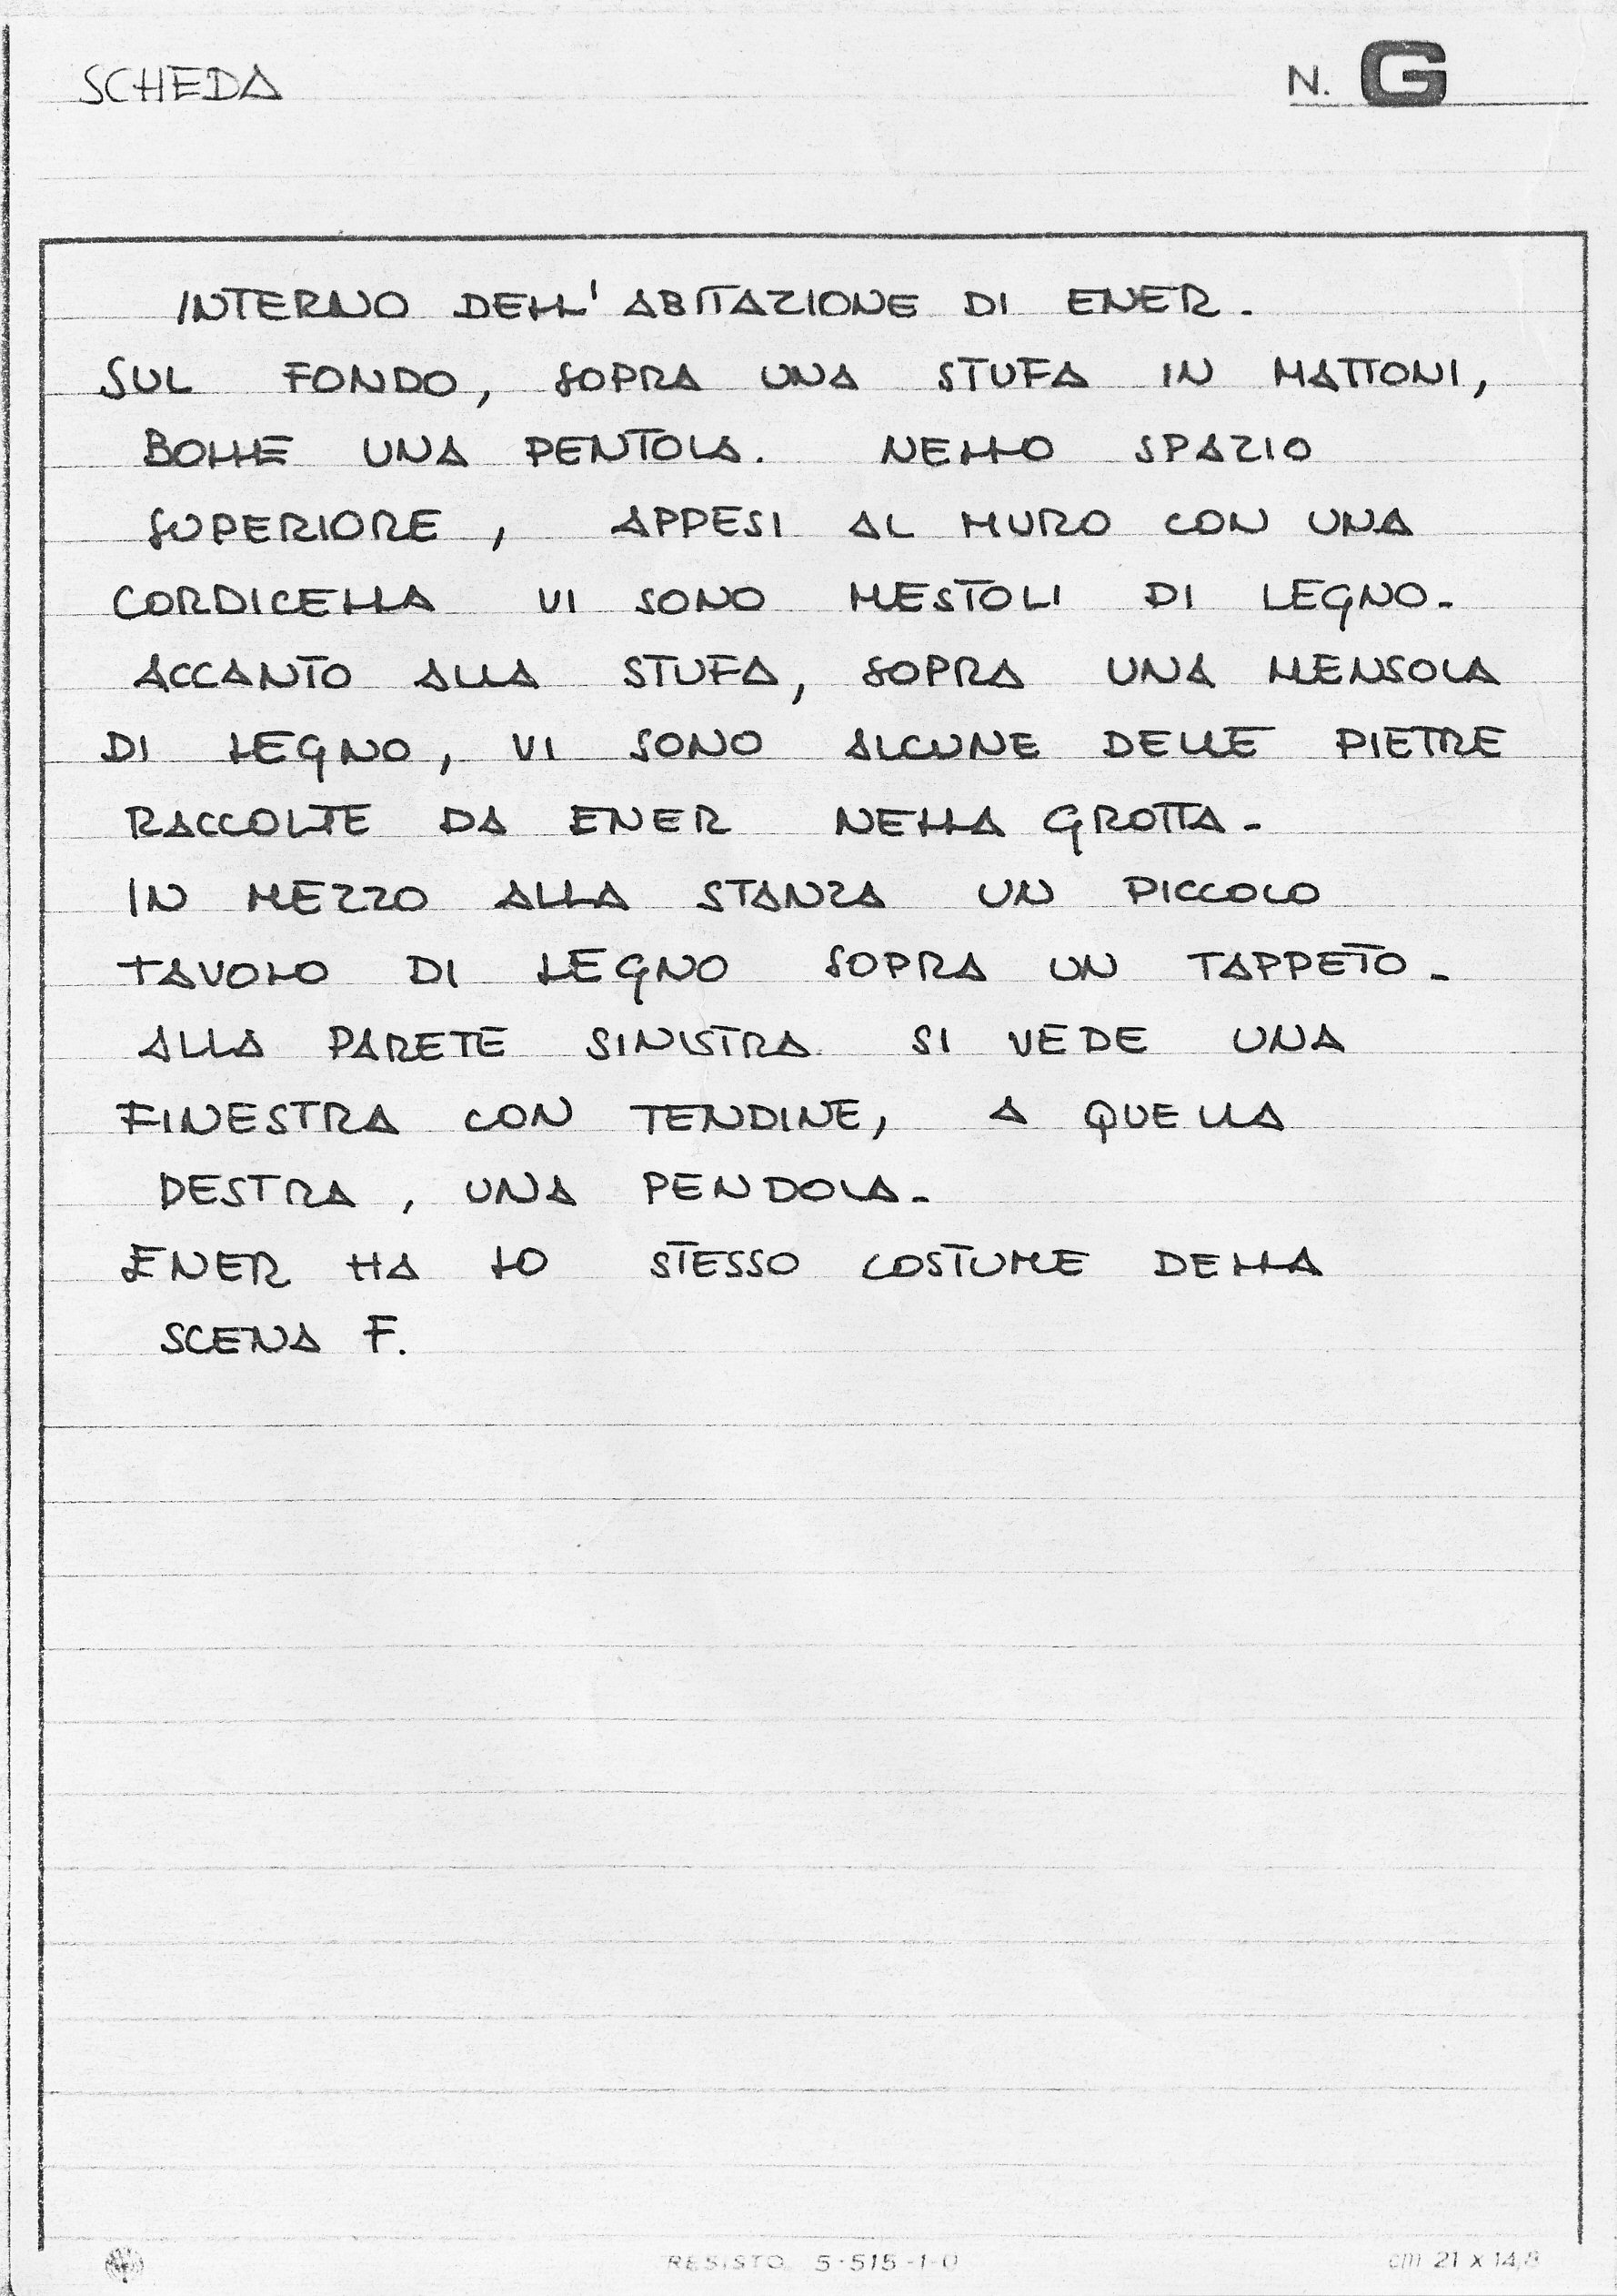 SCHEDA N. G
INTERNO DELL'ABITAZIONE DI ENER.
SUL FONDO, SOPRA UNA STUFA IN MATTONI,
BOLLE UNA PENTOLA. NELLO SPAZIO
SUPERIORE, APPESI AL MURO CON UNA
CORDICELLA VI SONO MESTOLI DI LEGNO.
ACCANTO ALLA STUFA, SOPRA UNA MENSOLA
DI LEGNO, VI SONO ALCUNE DELLE PIETRE
RACCOLTE DA ENER NELLA GROTTA.
IN MEZZO ALLA STANZA UN PICCOLO
TAVOLO DI LEGNO SOPRA UN TAPPETO.
ALLA PARETE SINISTRA SI VEDE UNA
FINESTRA CON TENDINE, A QUELLA
DESTRA, UNA PENDOLA.
ENER HA LO STESSO COSTUME DELLA
SCENA F.
RESISTO 5-515-1-0 cm 21 x 14,8